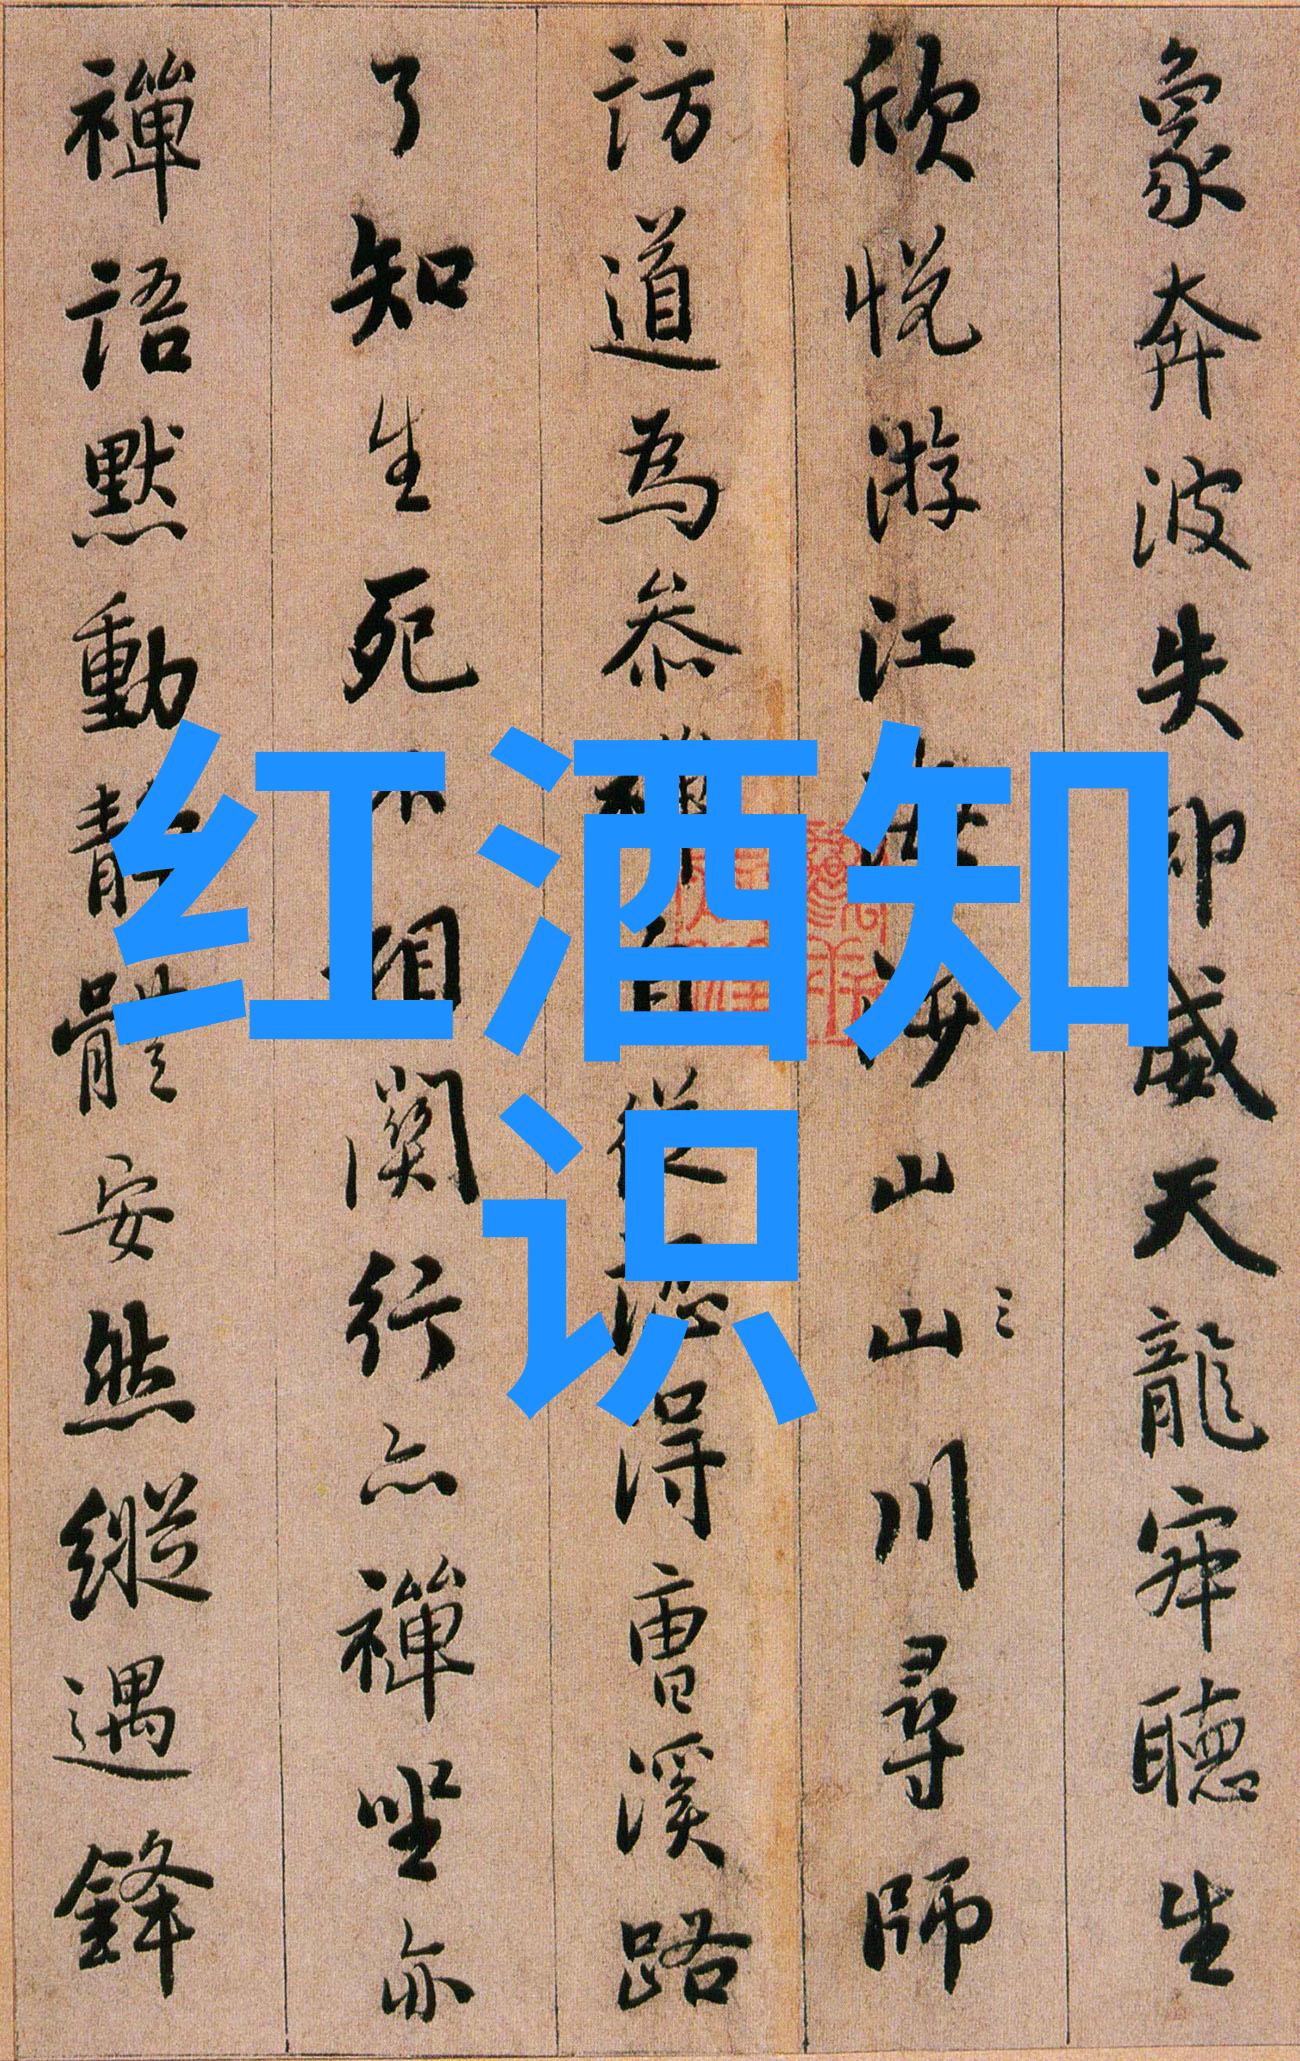 象奔波失却威天龍寂聽生
欣悅游江山山川尋師
訪道為叅禪自從得曹溪路
了知生死不相關行亦禪坐亦
禪語默動靜體安然縱遇鋒
红酒知
识